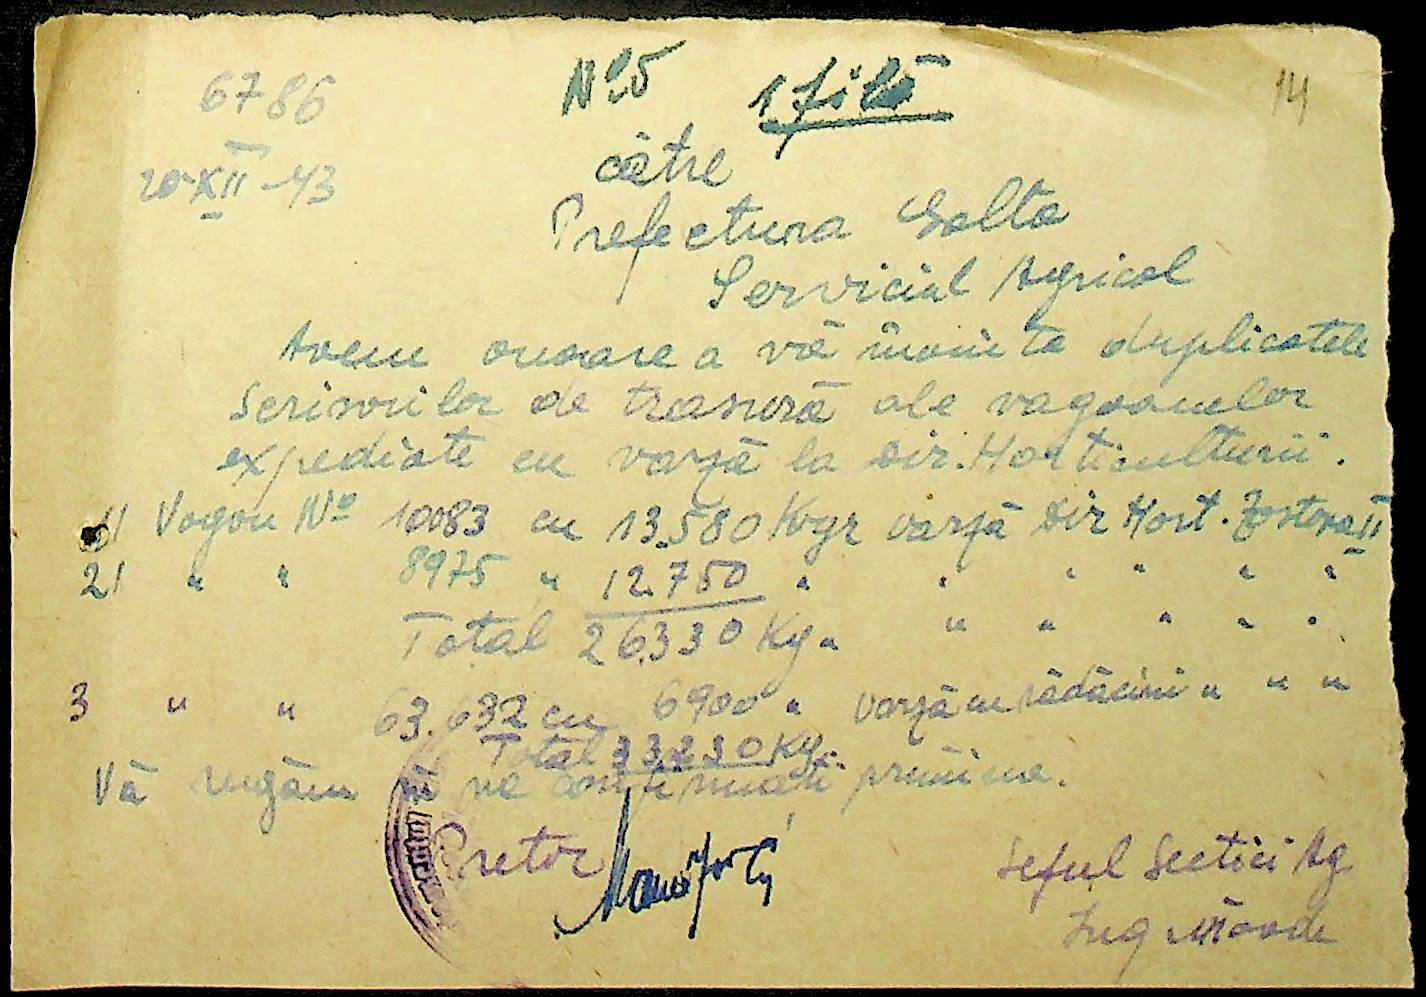 6786
20-XII-43
No 5 1 filă
14
către
Prefectura Golta
Serviciul Agricol
Avem onoare a vă înainta duplicatele
scrisorilor de trasură ale vagoanelor
expediate cu varză la Dir. Horticulturii.
1/ Vagon No 10083 cu 13.580 Kgr varză Dir Hort.
2/ " " 8975 " 12.750 " " " " " "
Total 26330 Kg. " " " " "
3 " " 63.632 cu 6900 " varză cu rădăcini " " "
Total 33230 Kg.
Vă rugăm a ne confirma primirea.
Pretor
Seful Sectiei Ag
Ing